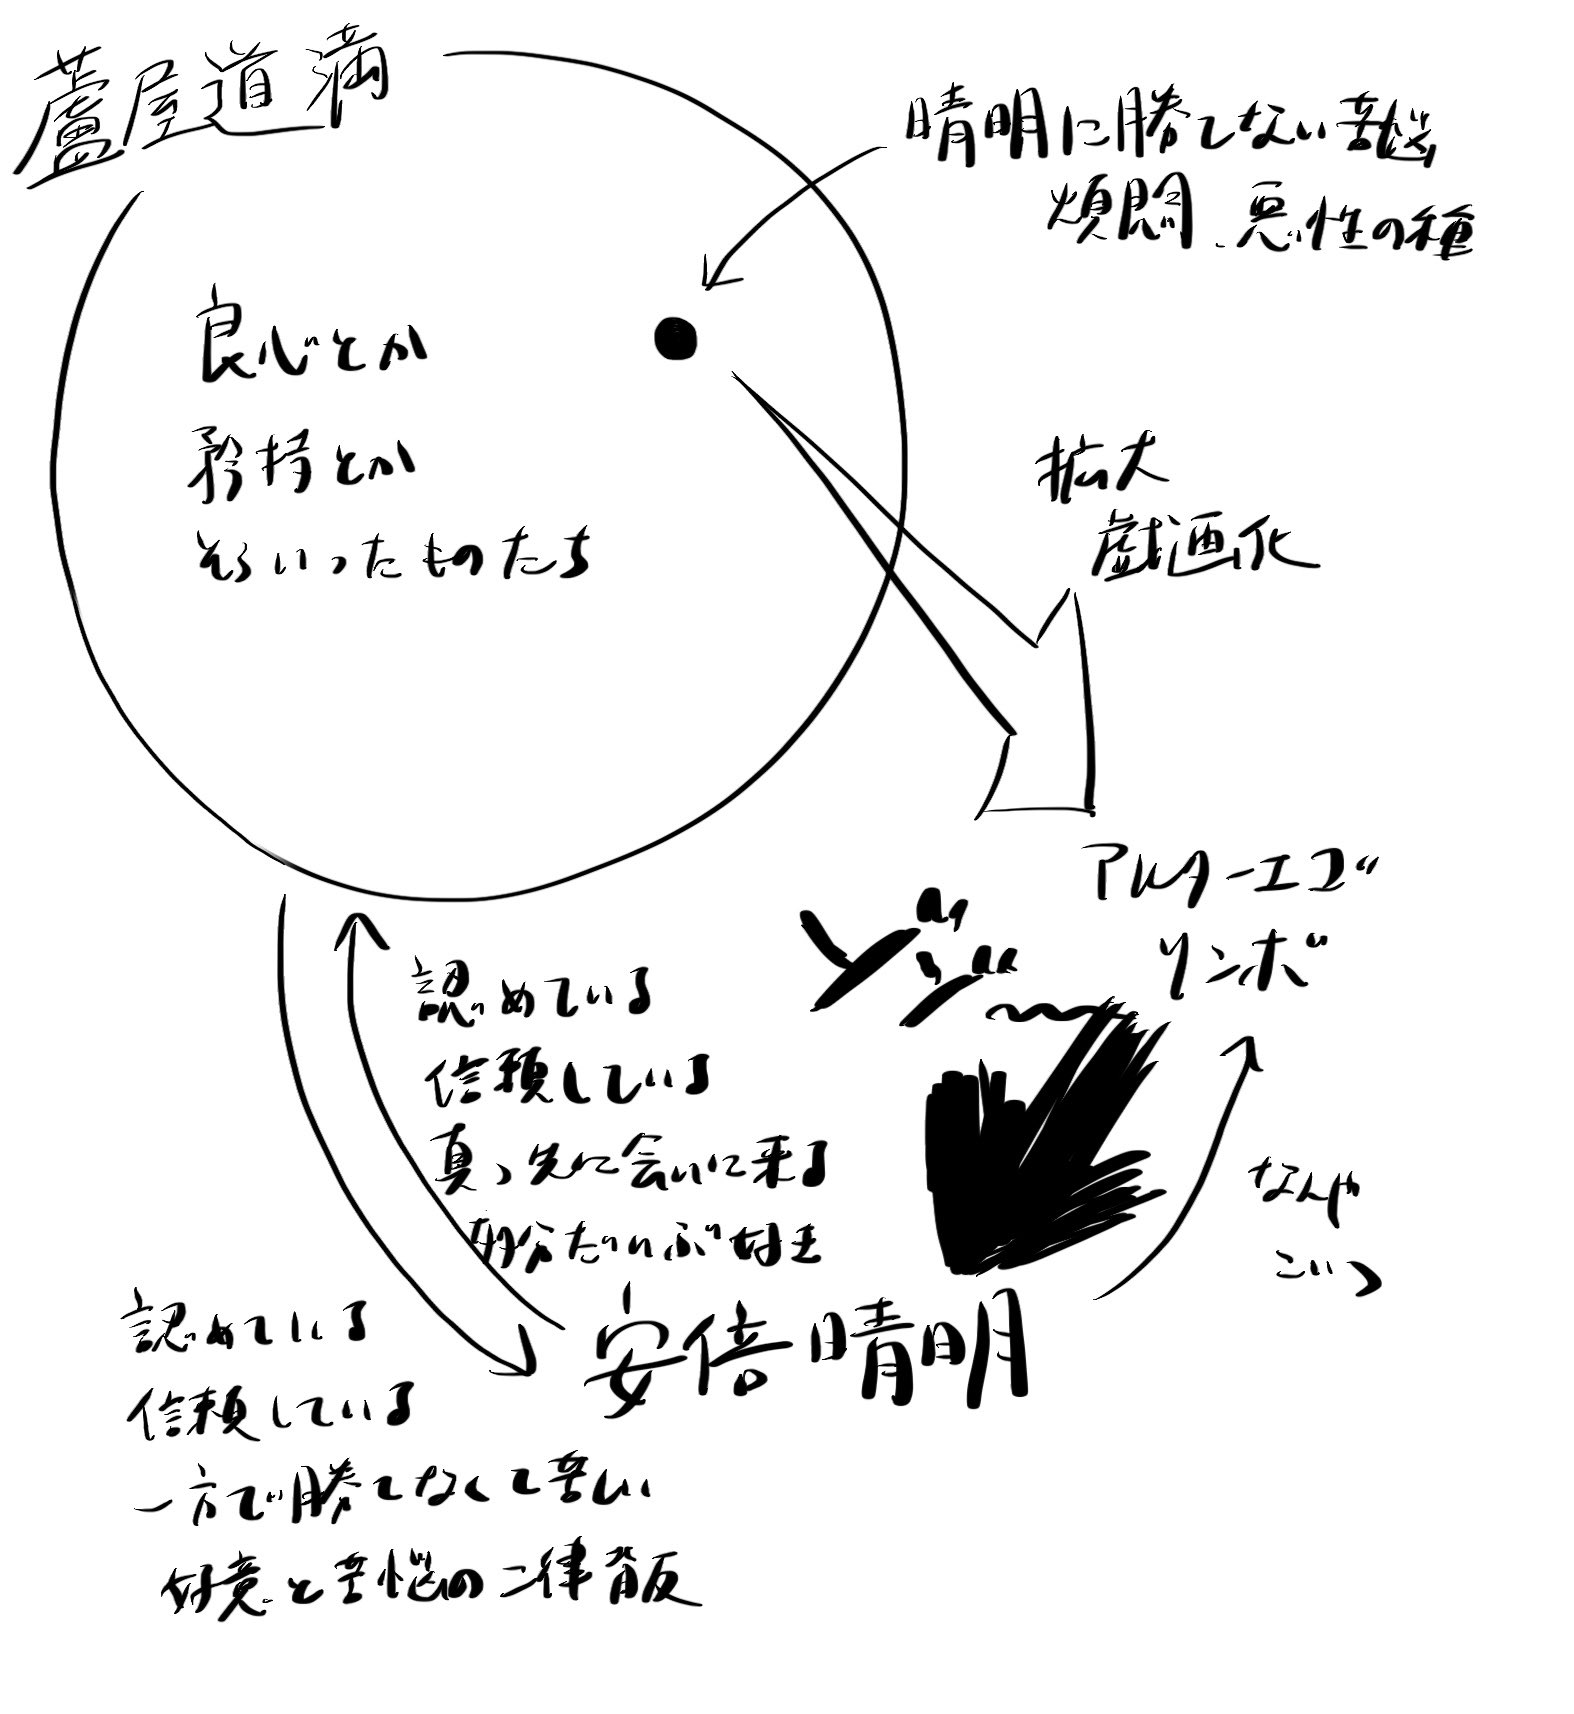 蘆屋道満
晴明に勝てない苦悩
煩悶、悪性の種
良心とか
矜持とか
そういったものたち
拡大
戯画化
アルターエゴ
リンボ
ソンボ〜
認めている
信頼している
真っ先に会いに来る
多分だいぶ好き
なんや
こいつ
安倍晴明
認めている
信頼している
一方で勝てなくて苦しい
好意と苦悩の二律背反